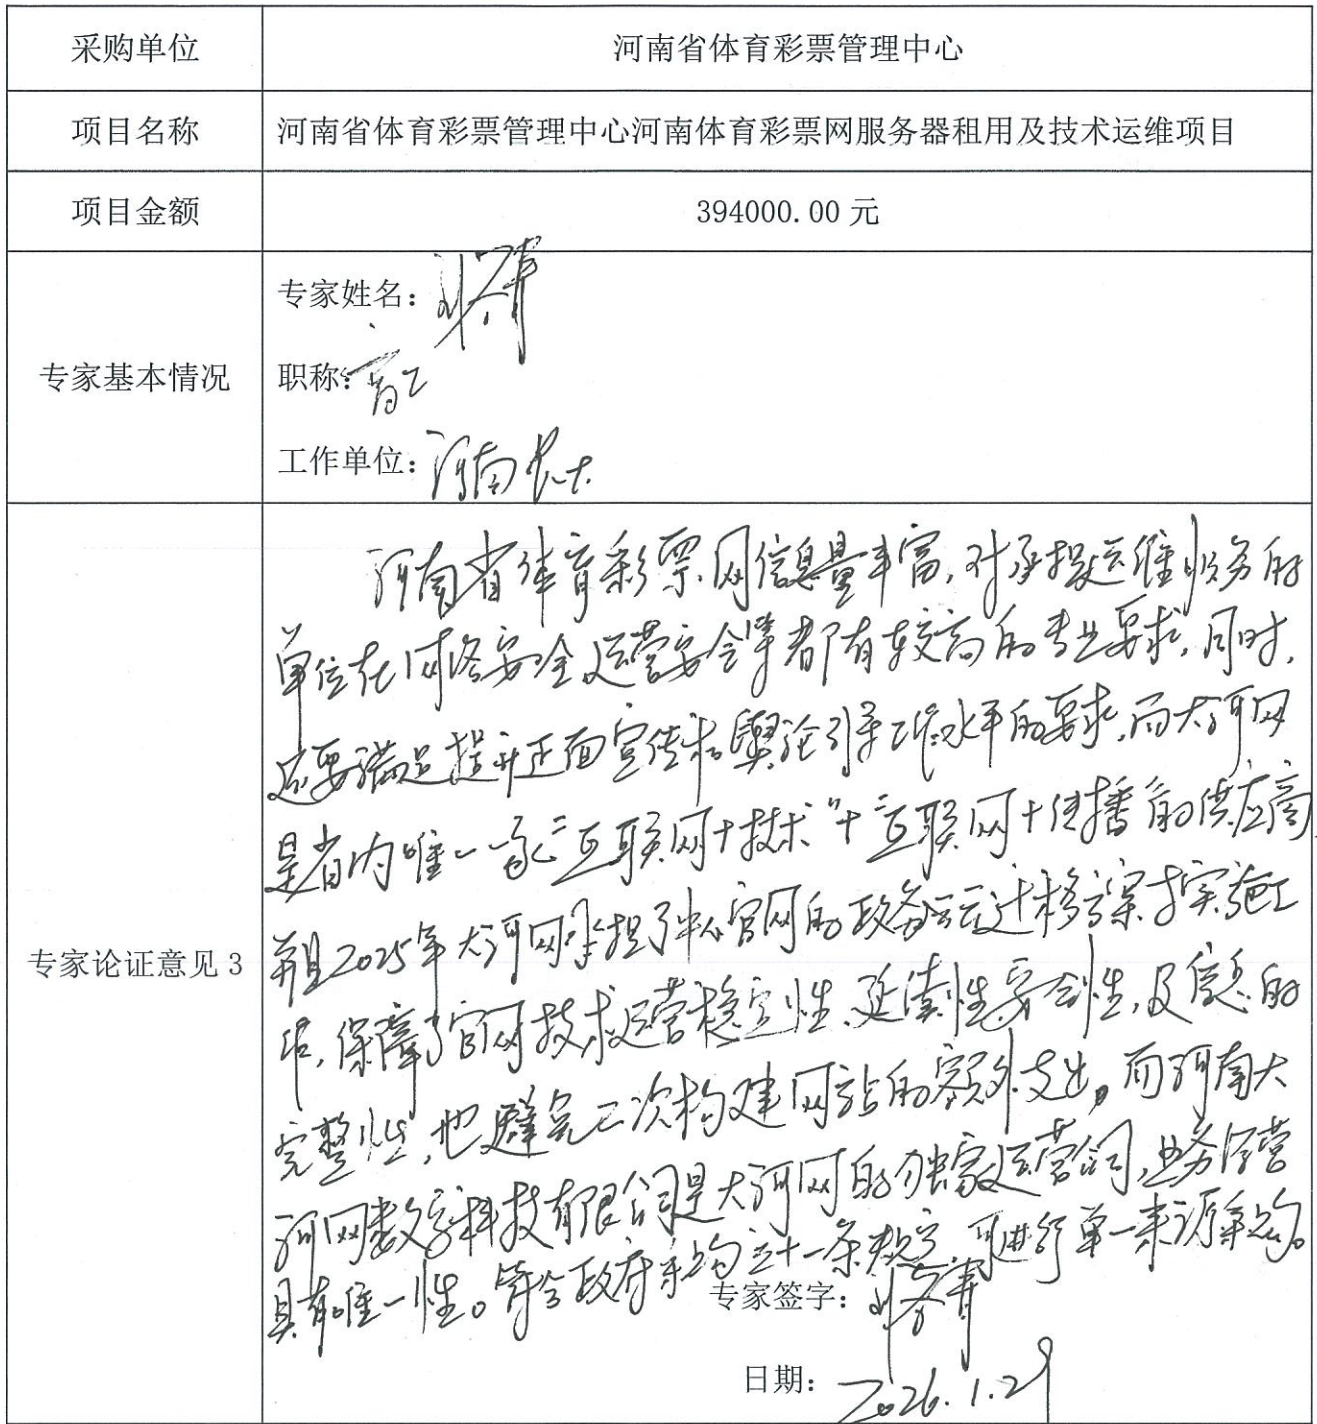 采购单位 河南省体育彩票管理中心
项目名称 河南省体育彩票管理中心河南体育彩票网服务器租用及技术运维项目
项目金额 394000.00 元
专家基本情况
专家姓名：
职称：高工
工作单位：河南农大
专家论证意见 3
河南省体育彩票网信息量丰富，对承担运维业务的
单位在网络安全运营安全等都有较高的专业要求，同时，
还要满足提升正面宣传和舆论引导工作水平的要求，而大河网
是省内唯一一家"互联网+技术"+"互联网+传播"的供应商
并且2025年大河网承担了中心官网的政务云迁移方案与实施工
作，保障了官网技术运营稳定性、延续性安全性，及信息的
完整性，也避免二次构建网站的额外支出。而河南大
河网数字科技有限公司是大河网的独家运营公司，业务经营
具有唯一性。符合政府采购法三十一条规定，可进行单一来源采购。
专家签字：
日期：2026.1.29